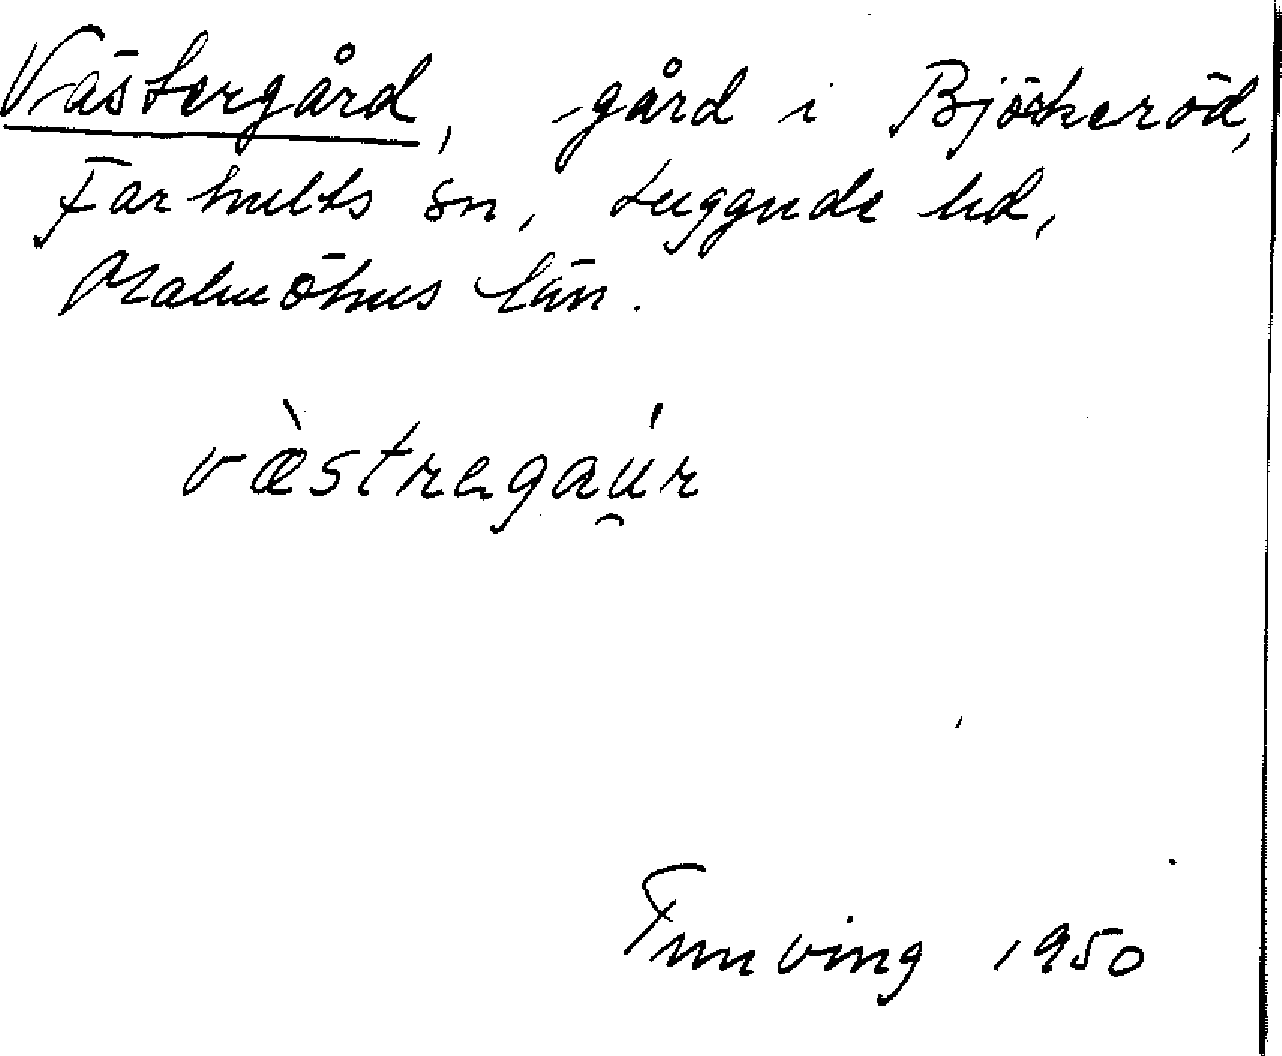 Västergård, gård i Björkeröd,
Farhults sn, Luggude hd,
Malmöhus län.
væ̀stregaú̯r
1950